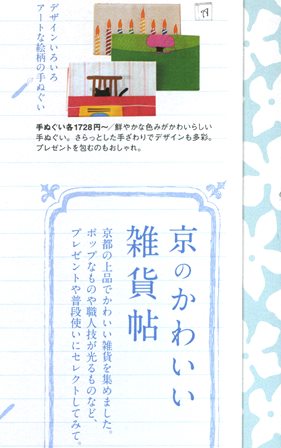 デザインいろいろ
アートな絵柄の手ぬぐい
手ぬぐい各1728円〜／鮮やかな色みがかわいらしい
手ぬぐい。さらっとした手ざわりでデザインも多彩。
プレゼントを包むのもおしゃれ。
京のかわいい
雑貨帖
京都の上品でかわいい雑貨を集めました。
ポップなものや職人技が光るものなど、
プレゼントや普段使いにセレクトしてみて。